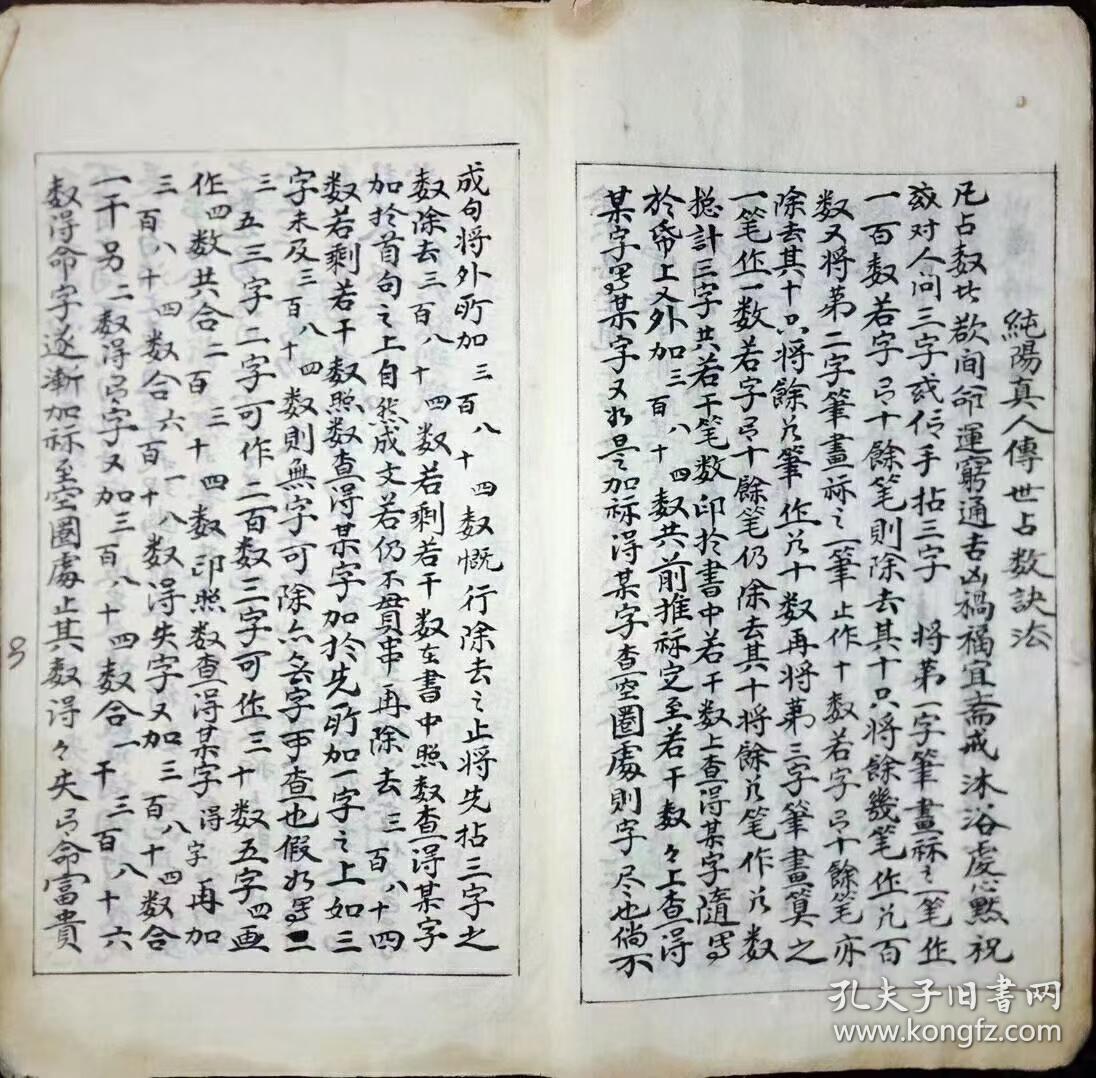 純陽真人傳世占数訣法
凡占数者欲间命運窮通吉凶禍福宜斋戒沐浴虔心黙祝
或对人问三字或信手拈三字 将第一字筆畫秝之一笔作
一百数若字有十餘笔则除去其十只将餘幾笔作几百
数又将第二字筆畫秝之一筆止作十数若字有十餘笔亦
除去其十只将餘几筆作几十数再将第三字筆畫算之
一笔作一数若字有十餘笔仍除去其十将餘几笔作几数
捴計三字共若干笔数即於書中若干数上查得某字隨写
於帋上又外加三百八十四数共前推秝定至若干数々上查得
某字写某字又如是之加秝得某字查空圏處则字尽也倘不
成句将外所加三百八十四数慨行除去之止将先拈三字之
数除去三百八十四数若剩若干数在書中照数查得某字
加於首句之上自然成文若仍不貫串再除去三百八十四
数若剩若干数照数查得某字加於先所加一字之上如三
字未及三百八十四数则無字可除亦無字可查也假如写二
三五三字二字可作二百数三字可作三十数五字四画
作四数共合二百三十四数即照数查得某字得字再加
三百八十四数合六百一十八数得失字又加三百八十四数合
一千另二数得有字又加三百八十四数合一千三百八十六
数得命字逐漸加秝至空圏處止其数得々失有命富貴
孔夫子旧書网
www.kongfz.com